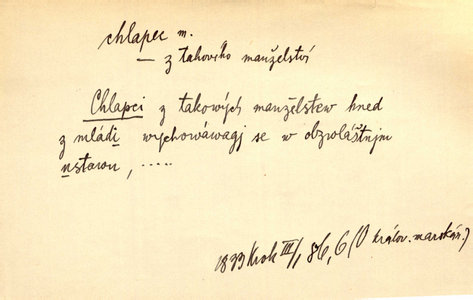 chlapec m.
— z takového manželství
Chlapci z takowých manželstew hned
z mládi wychowáwagj se w obzwláštnjm
ustawu, .....
1833 Krok III/1, 86, 6 (O králov. marokán.)